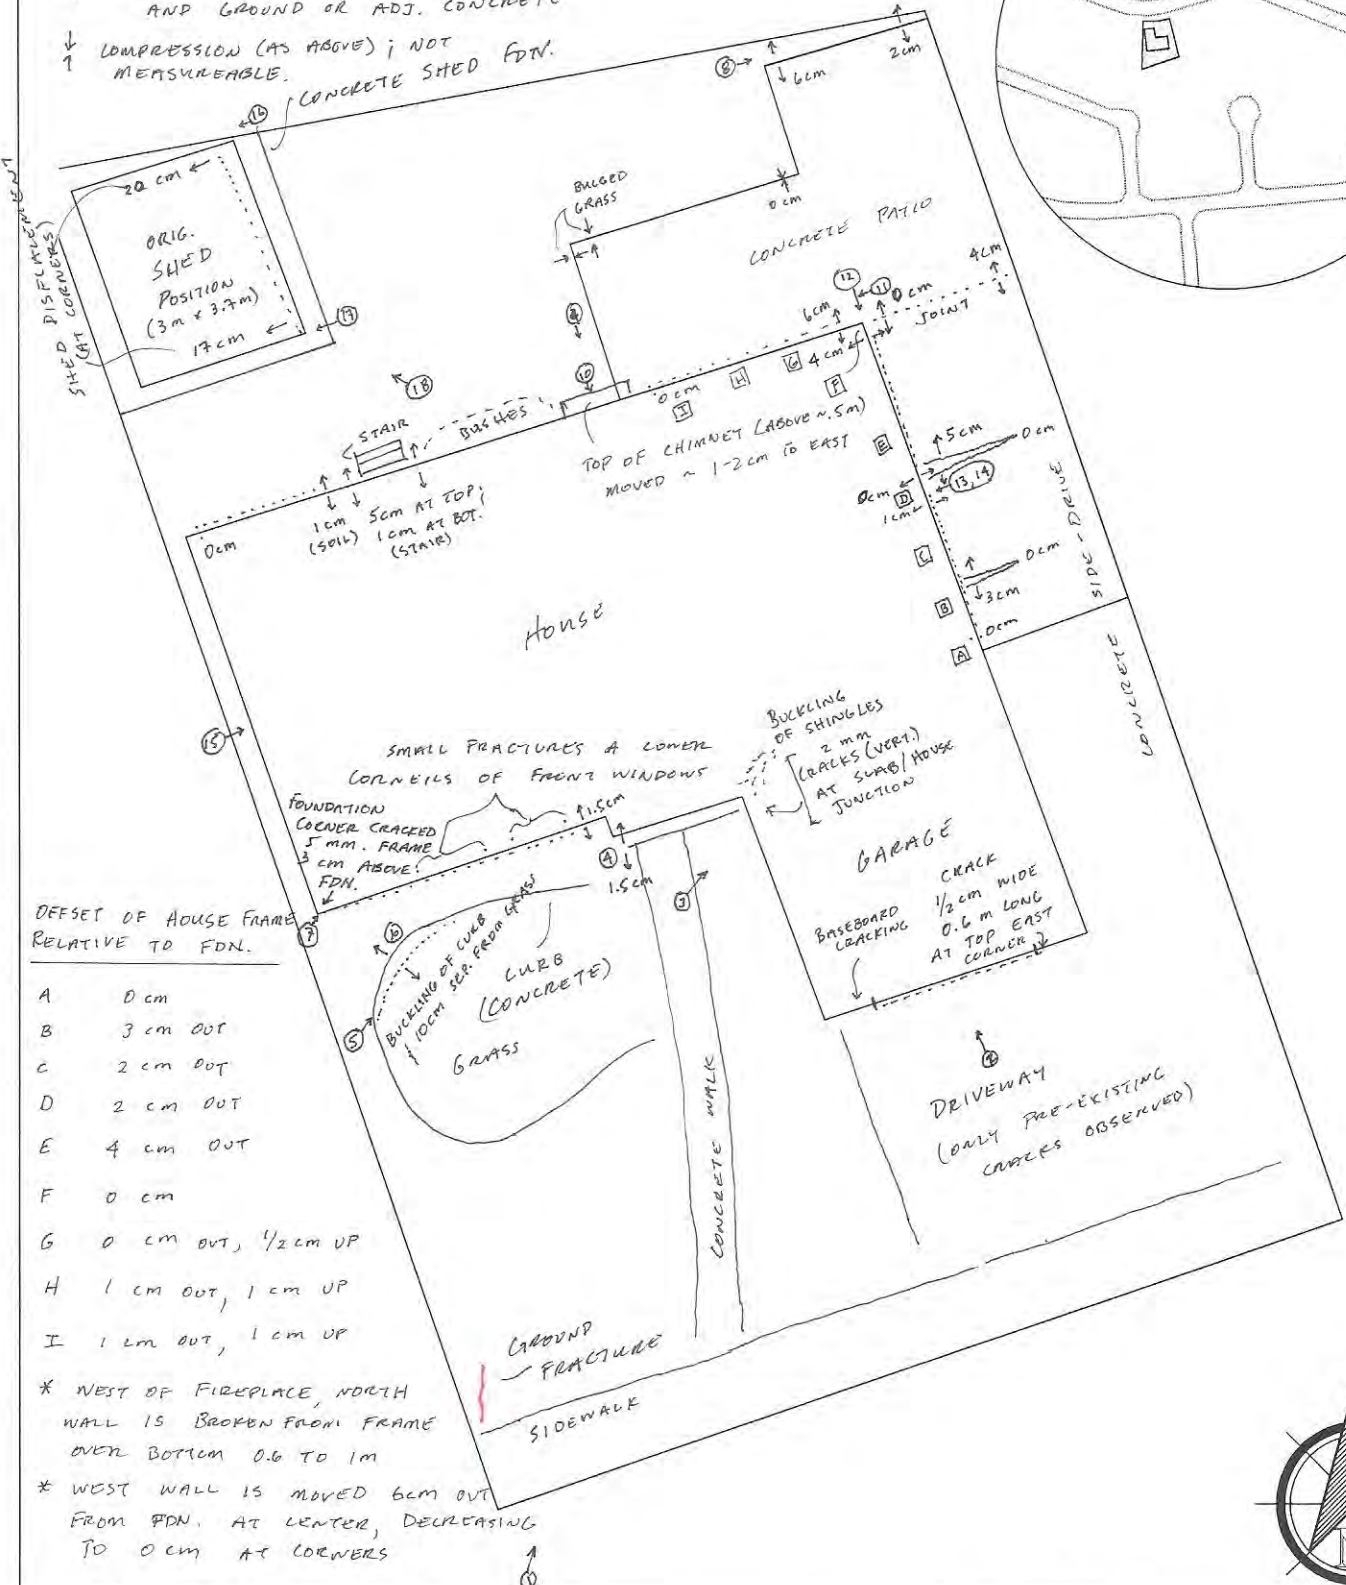 AND GROUND OR ADJ. CONCRETE
COMPRESSION (AS ABOVE); NOT
MEASUREABLE.
CONCRETE SHED FDN.
16
20 cm
ORIG.
SHED
POSITION
(3m x 3.7m)
17 cm
17
SHED DISPLACEMENT
(AT CORNERS)
18
8
6cm
2cm
BULGED
GRASS
0 cm
CONCRETE PATIO
4cm
12
11
0 cm
6cm
JOINT
4 cm
10
0cm
I
H
G
F
E
D
C
B
A
STAIR
BUSHES
TOP OF CHIMNEY (ABOVE ~.5m)
MOVED ~ 1-2cm TO EAST
5cm
0cm
13, 14
0cm
1cm
0cm
3cm
0cm
SIDE-DRIVE
CONCRETE
0cm
1cm
(SOIL)
5cm AT TOP;
1cm AT BOT.
(STAIR)
HOUSE
15
SMALL FRACTURES @ LOWER
CORNERS OF FRONT WINDOWS
BUCKLING
OF SHINGLES
2 mm
CRACKS (VERT.)
AT SLAB/HOUSE
JUNCTION
FOUNDATION
CORNER CRACKED
5 mm. FRAME
3 cm ABOVE
FDN.
1.5cm
4
1.5cm
3
7
6
5
BUCKLING OF CURB
10CM SEP. FROM GRASS
CURB
(CONCRETE)
GRASS
GARAGE
BASEBOARD
CRACKING
CRACK
1/2 cm WIDE
0.6 m LONG
AT TOP EAST
CORNER
2
DRIVEWAY
(ONLY PRE-EXISTING
CRACKS OBSERVED)
CONCRETE WALK
GROUND
FRACTURE
SIDEWALK
1
OFFSET OF HOUSE FRAME
RELATIVE TO FDN.
A 0 cm
B 3 cm OUT
C 2 cm OUT
D 2 cm OUT
E 4 cm OUT
F 0 cm
G 0 cm OUT, 1/2 cm UP
H 1 cm OUT, 1 cm UP
I 1 cm OUT, 1 cm UP
* WEST OF FIREPLACE, NORTH
WALL IS BROKEN FROM FRAME
OVER BOTTOM 0.6 TO 1m
* WEST WALL IS MOVED 6cm OUT
FROM FDN. AT CENTER, DECREASING
TO 0 cm AT CORNERS